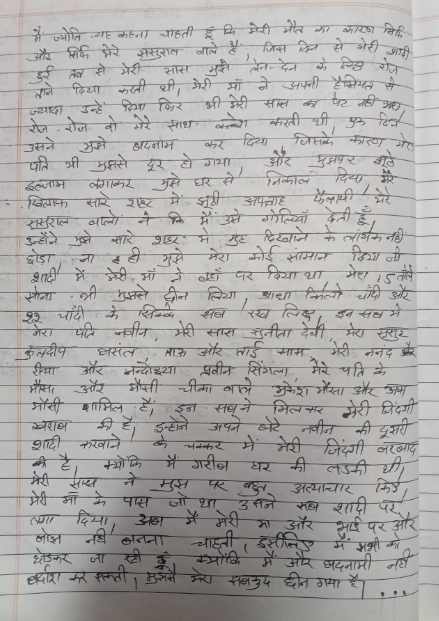 मैं ज्योति यह कहना चाहती हूँ कि मेरी मौत का कारण सिर्फ
और सिर्फ मेरे ससुराल वाले हैं, जिस दिन से मेरी शादी
हुई तब से मेरी सास मुझे लेन-देन के लिए रोज
ताने दिया करती थी, मेरी माँ ने अपनी हैसियत से
ज्यादा उन्हें दिया फिर भी मेरी सास का पेट नहीं भरा
रोज-रोज वो मेरे साथ करती थी एक दिन
उसने मुझे बदनाम कर दिया जिसके कारण मेरा
पति भी मुझसे दूर हो गया, और मुझपर झूठे
इल्जाम लगाकर मुझे घर से निकाल दिया, मेरे
खिलाफ सारे शहर में झूठी अफवाह फैलायी, मेरे
ससुराल वालो ने कि मैं उसे गोलियाँ देती हूँ,
इन्होंने मुझे सारे शहर में मुंह दिखाने के लायक नहीं
छोडा, ना ही मुझे मेरा कोई सामान दिया जो
शादी में मेरी माँ ने वहाँ पर दिया था मेरा, 15 तोले
सोना भी मुझसे छीन लिया, आधा किलो चाँदी और
चाँदी के सिक्के सब रख लिए, इन सब में
मेरा पति नवीन, मेरी सास सुनीता देवी, मेरा ससुर
कुलदीप बसंत, ताऊ और ताई मेरी ननद और
रीमा और नन्दोइया प्रवीन सिंगला, मेरे पति के
मौसा और मौसी चीका वाले मुकेश मौसा और
मौसी शामिल हैं, इन सब ने मिलकर मेरी जिंदगी
खराब की है, इन्होंने अपने बेटे नवीन की दूसरी
शादी करवाने के चक्कर में मेरी जिंदगी बरबाद
की है, क्योंकि मैं गरीब घर की लडकी थी,
मेरी सास ने मुझ पर बहुत अत्याचार किए
मेरी माँ के पास जो था उसने सब शादी पर
लगा दिया, अब मैं मेरी माँ और भाई पर और
बोझ नहीं बनना चाहती, इसीलिए मैं सभी को
छोडकर जा रही हूँ क्योंकि मैं और बदनामी नहीं
बर्दाश कर सकती, मुझसे मेरा सबकुछ छीन गया है, ...